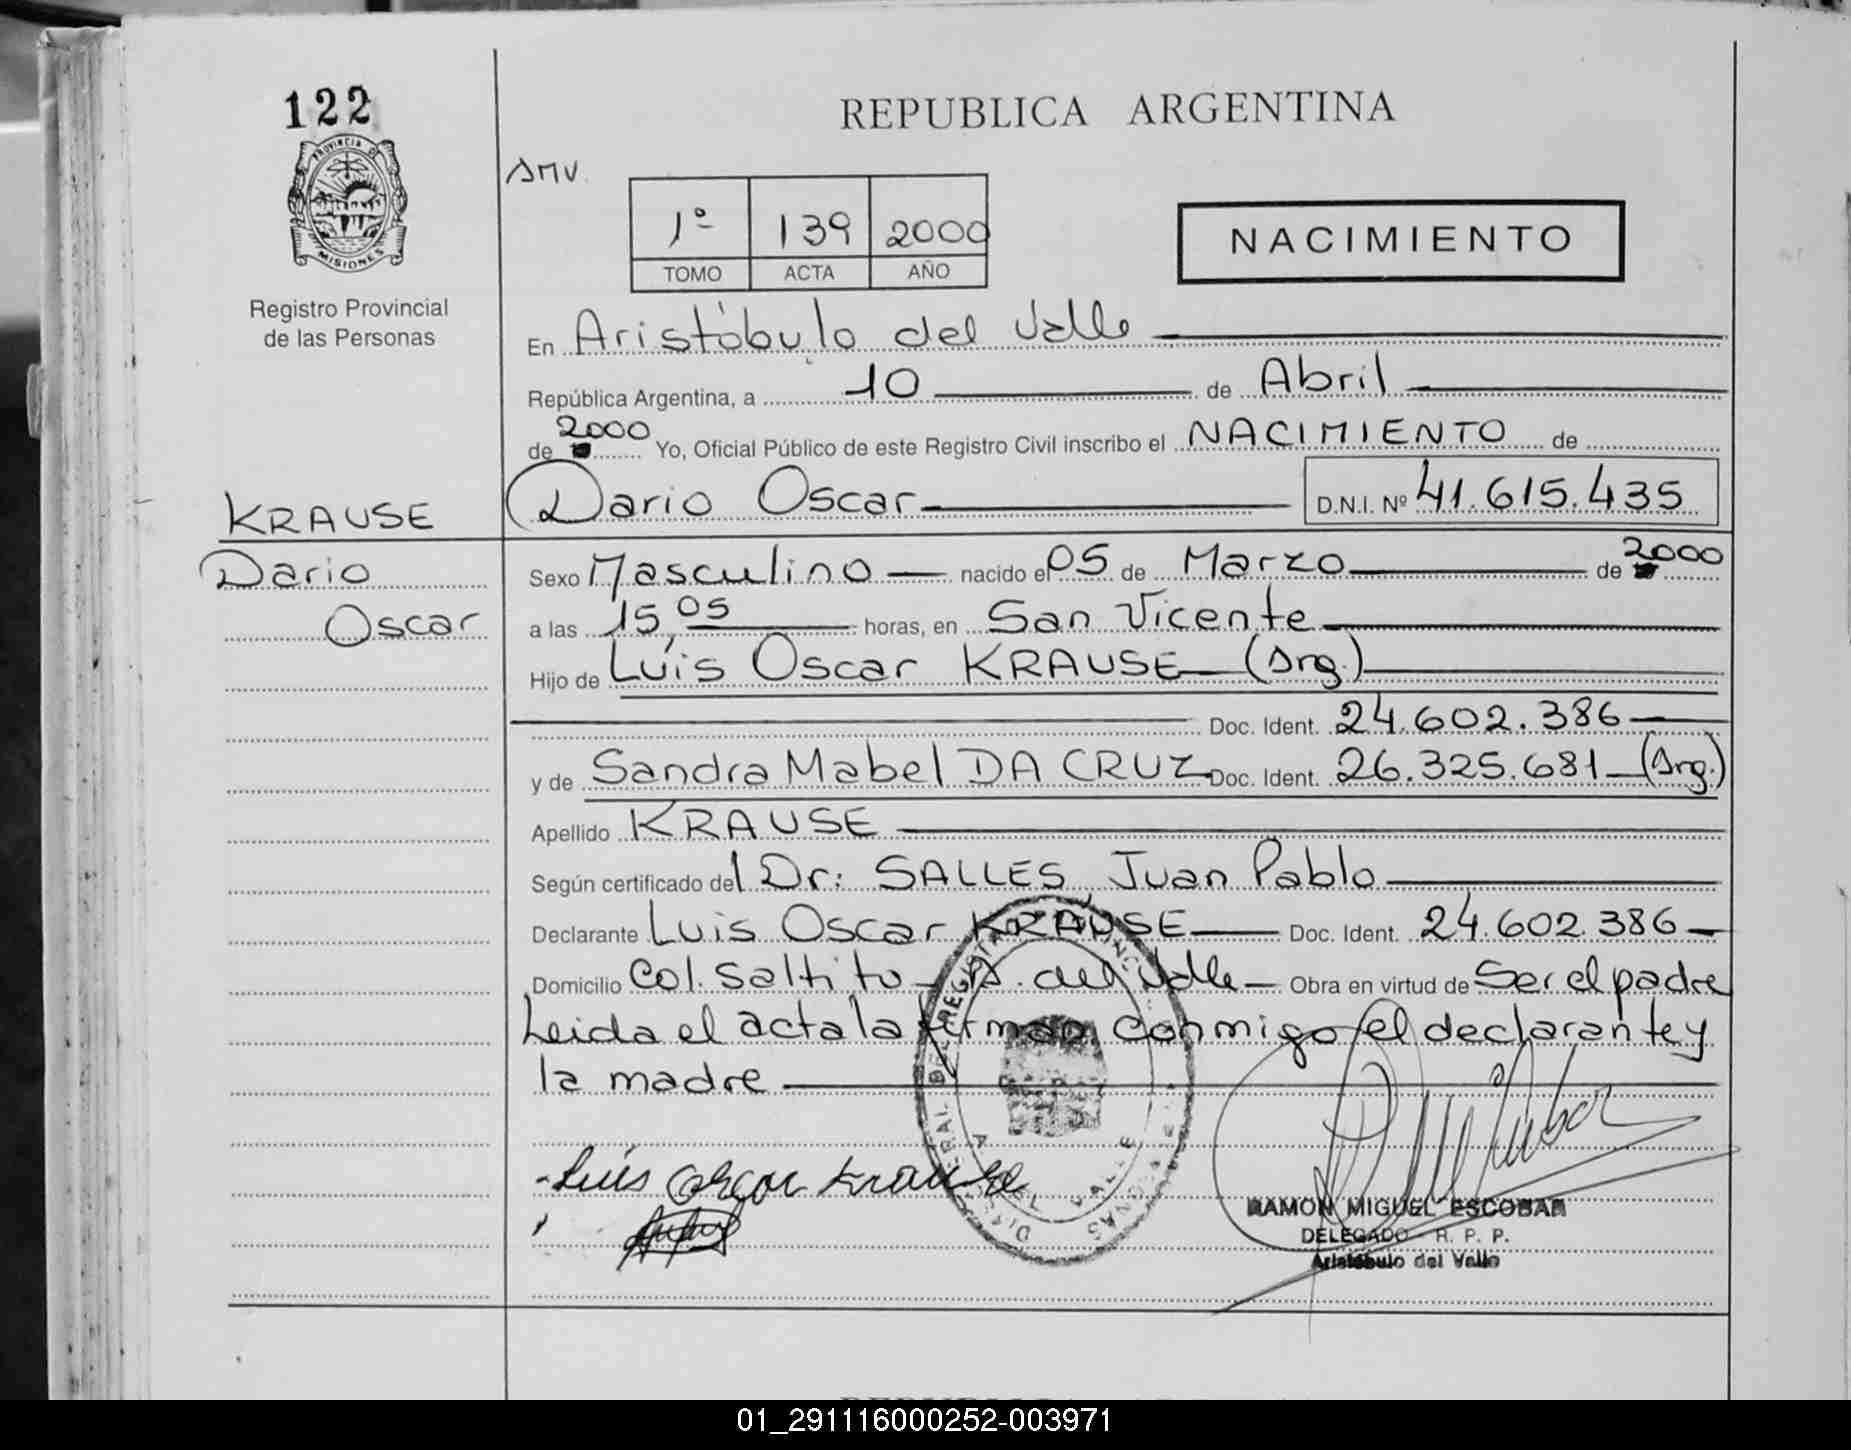 122
PROVINCIA DE
MISIONES
Registro Provincial
de las Personas
KRAUSE
Dario
Oscar
REPUBLICA ARGENTINA
1º 139 2000
TOMO ACTA AÑO
NACIMIENTO
En Aristóbulo del Valle
República Argentina, a 10 de Abril
de 2000 Yo, Oficial Público de este Registro Civil inscribo el NACIMIENTO de
Dario Oscar D.N.I. Nº 41.615.435
Sexo Masculino nacido el 05 de Marzo de 2000
a las 15,05 horas, en San Vicente
Hijo de Luis Oscar KRAUSE (Arg.)
Doc. Ident. 24.602.386
y de Sandra Mabel DA CRUZ Doc. Ident. 26.325.681 (Arg.)
Apellido KRAUSE
Según certificado del Dr: SALLES, Juan Pablo
Declarante Luis Oscar KRAUSE Doc. Ident. 24.602.386
Domicilio Col. Saltito - A. del Valle Obra en virtud de Ser el padre
Leida el acta la firman conmigo el declarante y
la madre
Luis Oscar Krause
RAMON MIGUEL ESCOBAR
DELEGADO R. P. P.
Aristóbulo del Valle
01_291116000252-003971